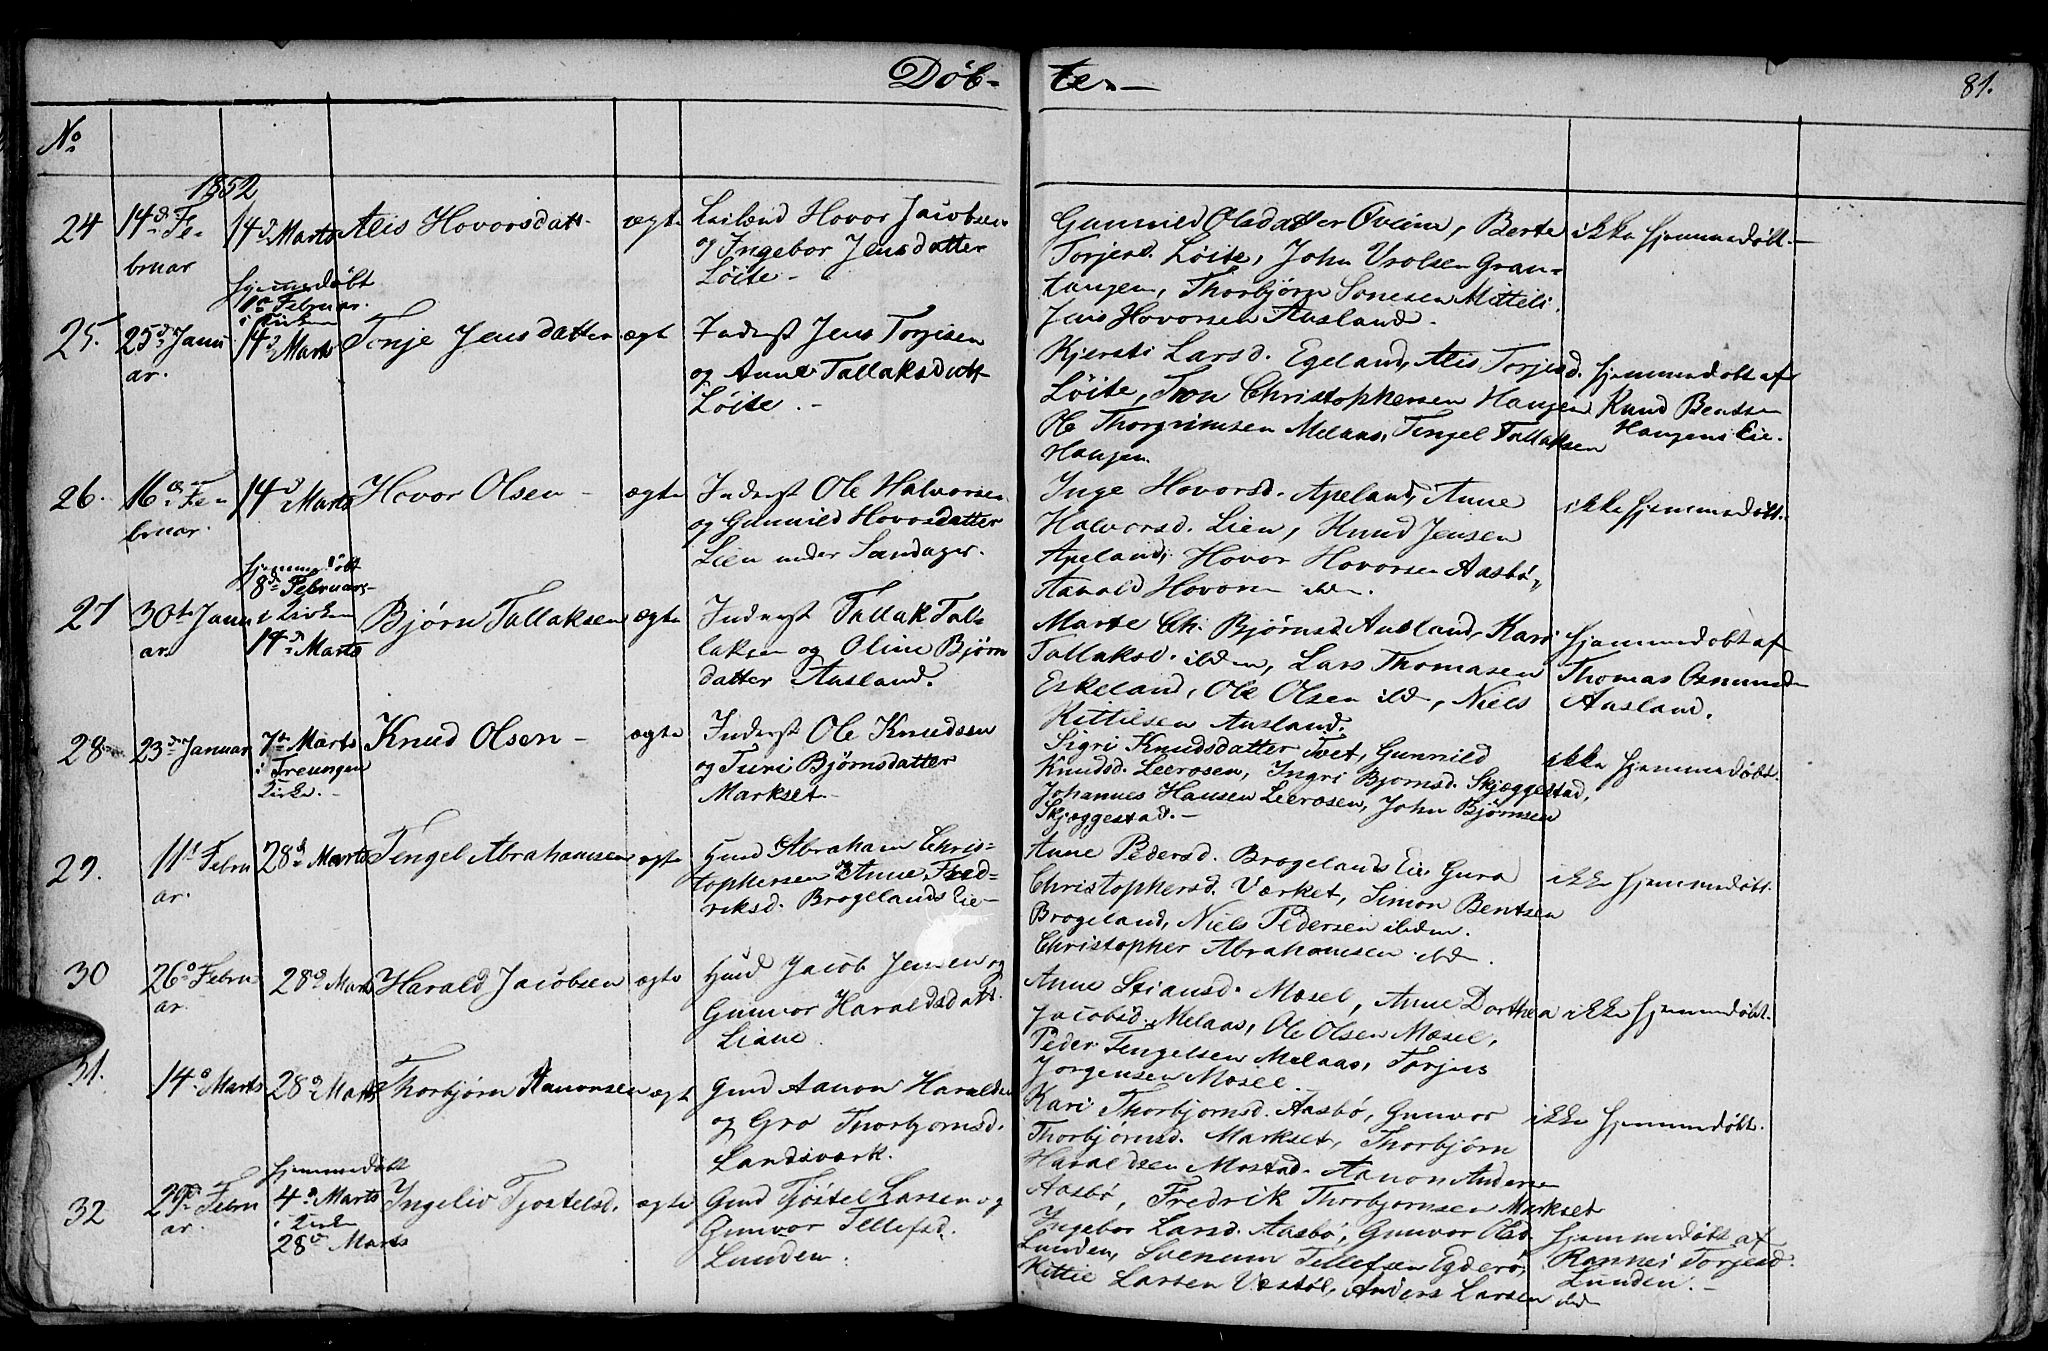 Døb-
te.
81.
No
1852
24
14d Fe-
bruar
14d Marts
Alis Hovorsdatt.
ægte
Leilænd Hovor Jacobsen
og Ingebor Jensdatter
Løite -
Gunnild Olsdatter Øveine, Berte
Torjesd. Løite, John Vrolsen Gran-
tangen, Thorbjørn Sonesen Mitteli.
Jens Hovorsen Ausland.
ikke hjemmedøbt.
25.
25d Janu
ar.
hjemmedøbt
Februar.
i Kirken
14d Marts
Tonje Jensdatter
ægte
Inderst Jens Torjisen
og Anne Tallaksdatt
Løite. -
Kjersti Larsd. Egeland, Alis Torjesd.
Løite, Tron Christophersen Haugen
Ole Thorgrimsen Melaas, Tengel Tallaksen
Haugen
hjemmedøbt af
Knud Bentsen
Haugens Eie.
26.
16d Fe-
bruar.
14d Marts
Hovor Olsen -
ægte
Inderst Ole Halvorsen
og Gunnild Hovorsdatter
Lien under Sandager.
Inge Hovorsd. Apeland, Anne
Halvorsd. Lien, Knud Jensen
Apeland, Hovor Hovorsen Aasbø,
Harald Hovorsen ibdm.
ikke hjemmedøbt.
27
30te Janu
ar.
hjemmedøbt
8d Februar-
i Kirken
14d Marts
Bjørn Tallaksen
ægte
Inderst Tallak Tal-
laksen og Oline Bjørn
datter Ausland.
Marte Ch. Bjørnsd. Ausland, Kari
Tallaksd. ibdm, Lars Thomasen
Eskeland, Ole Olsen ibd, Niels
Kittilsen Ausland.
hjemmedøbt af
Thomas Osmunds
Ausland.
28
23d Januar
7de Marts
i Treungen
Kirke. -
Knud Olsen -
ægte
Inderst Ole Knudsen
og Turi Bjørnsdatter
Markset -
Sigri Knudsdatter Tvet, Gunnild
Knudsd. Leerosen, Ingri Bjornsd. Skjæggestad,
Johannes Hansen Leerosen, John Bjørnsen
Skjæggestad. -
ikke hjemmedøbt.
29.
11t Febru
ar.
28d Marts
Tengel Abrahamsen
ægte
Huud Abraham Chris-
tophersen & Anne Fred-
riksd. Brogelands Eie -
Anne Pedersd. Brogelands Eie, Guro
Christophersd. Værket, Simon Bentsen
Brogeland, Niels Pedersen ibidem.
Christopher Abrahamsen ibdm.
ikke hjemmedøbt.
30
26d Febru-
ar.
28d Marts
Harald Jacobsen
ægte
Huud Jacob Jensen og
Gunvor Haraldsdatt.
Liane
Anne Stiansd. Mosel, Anne Dorthea
Jacobsd. Melaas, Ole Olsen Mosel,
Peder Tengelsen Melaas, Torjus
Jorgensen Mosel.
ikke hjemmedøbt.
31.
14d Marts
28d Marts
Thorbjørn Aanonsen
ægte
Gmd Aanon Haraldsen
og Gro Thorbjornsd.
Landsværk.
Kari Thorbjornsd. Aasbø, Gunvor
Thorbjørnsd. Markset, Thorbjørn
Haraldsen Mostad, Aanon Anders
Aasbø, Fredrik Thorbjornsen Markset
ikke hjemmedøbt.
32
29d Febru
ar.
hjemmedøbt
4d Marts
i Kirken
28d Marts
Ingeliv Tjostelsd.
ægte
Gmd Tjøstel Larsen og
Gunvor Tellefsd.
Lunden.
Ingebor Larsd. Aasbø, Gunvor Olsd.
Lunden, Svenum Tellefsen Egderø,
Kittil Larsen Vestøl, Anders Larsen ibd
hjemmedøbt af
Rannei Torjesd.
Lunden. -